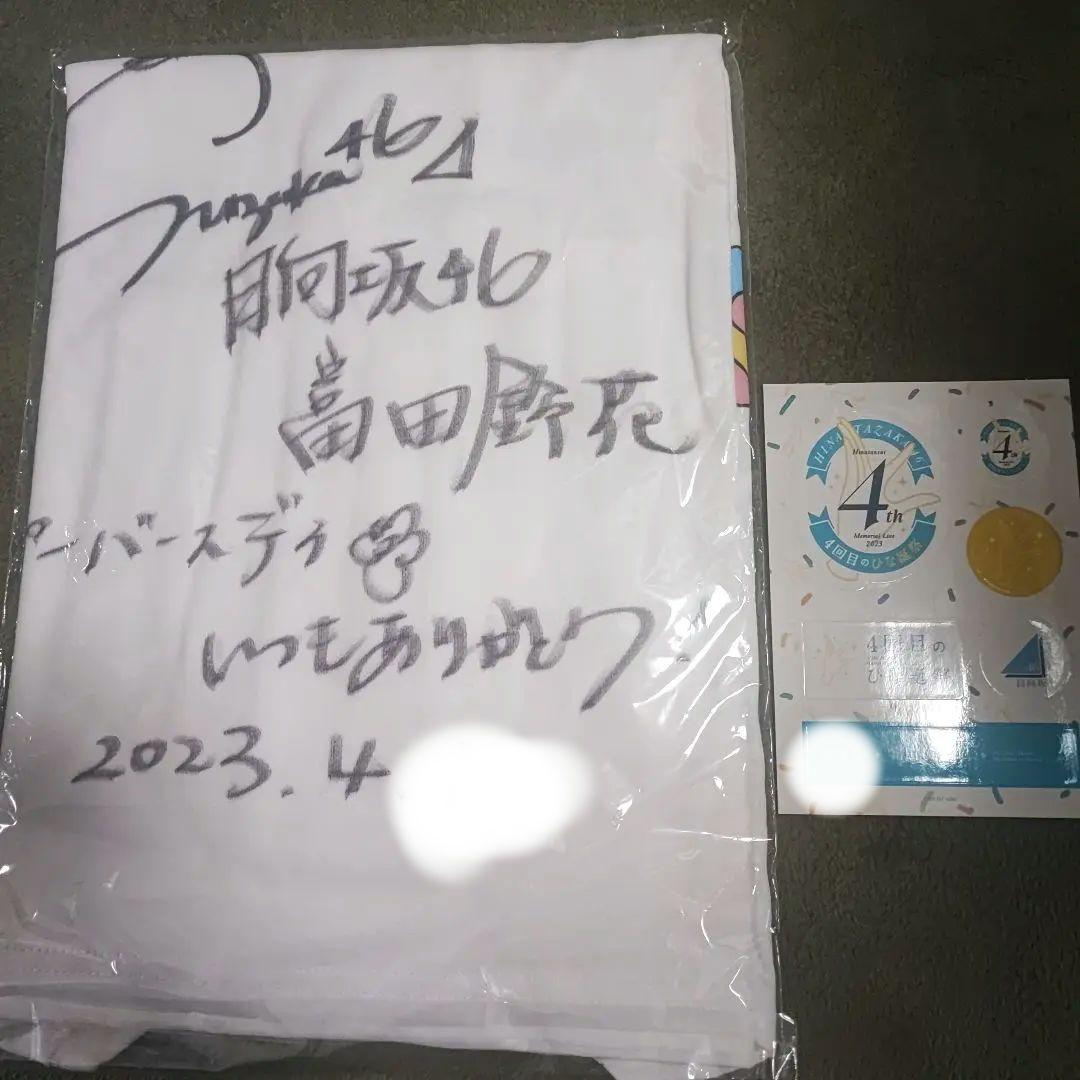 Suzuka46
日向坂46
富田鈴花
バースデイ
いつもありがとう
2023.4
HINATAZAKA46
Hinatansai
4th
Memorial Live
2023
4回目のひな誕祭
4th
4回目の
ひな誕祭